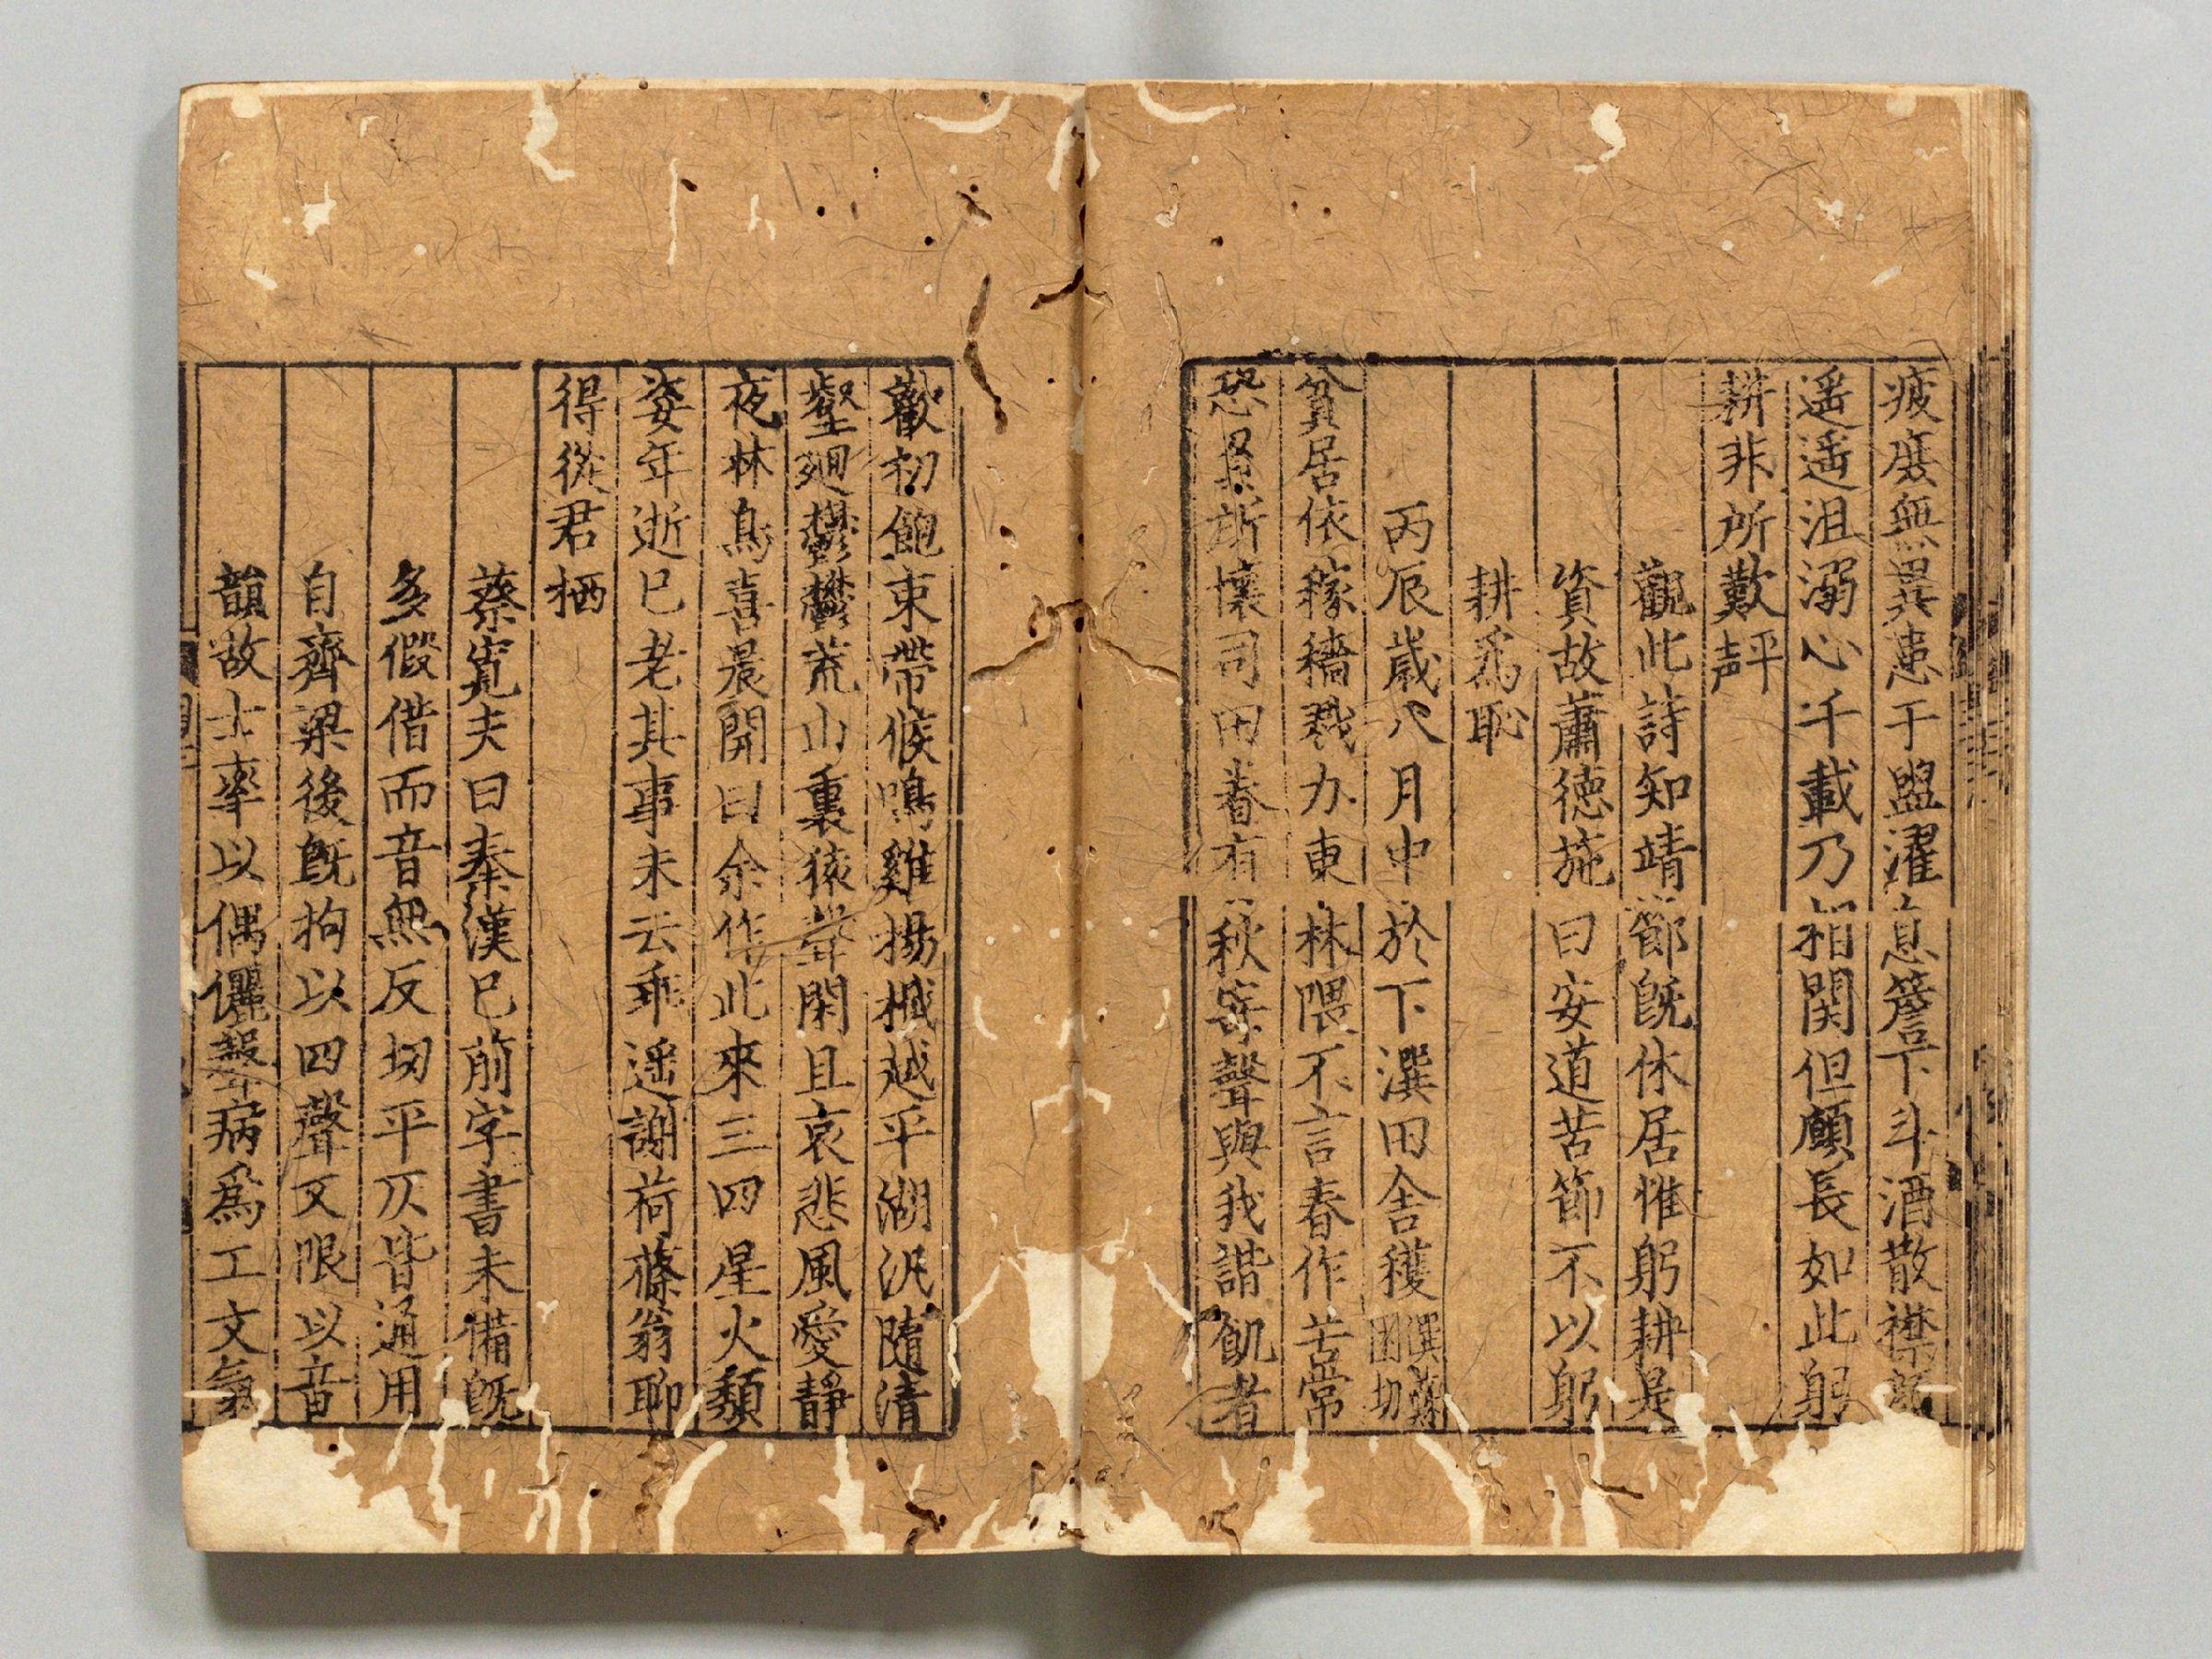 疲庻無異患于盥濯息簷下斗酒散襟
遥遥沮溺心千載乃相関但願長如此躬
耕非所歎評
觀此詩知靖節旣休居惟躬耕是
資故蕭徳施曰安道苦節不以躬
耕爲恥
丙辰歲八月中於下潠田舍穫潠蘓困切
貧居依稼穡戮力東林隈不言春作苦常
恐負所懷司田眷有秋寄聲與我諧飢者
歡初飽束帶候鳴雞揚檝越平湖汎隨清
壑廻鬱鬱荒山裏猿聲閑且哀悲風愛靜
夜林鳥喜晨開曰余作此來三四星火頹
姿年逝巳老其事未云乖遥謝荷蓧翁聊
得從君栖
蔡寛夫曰秦漢巳前字書未備旣
多假借而音無反切平仄皆通用
自齊梁後旣拘以四聲又限以音
韻故士率以偶儷聲病爲工文氣